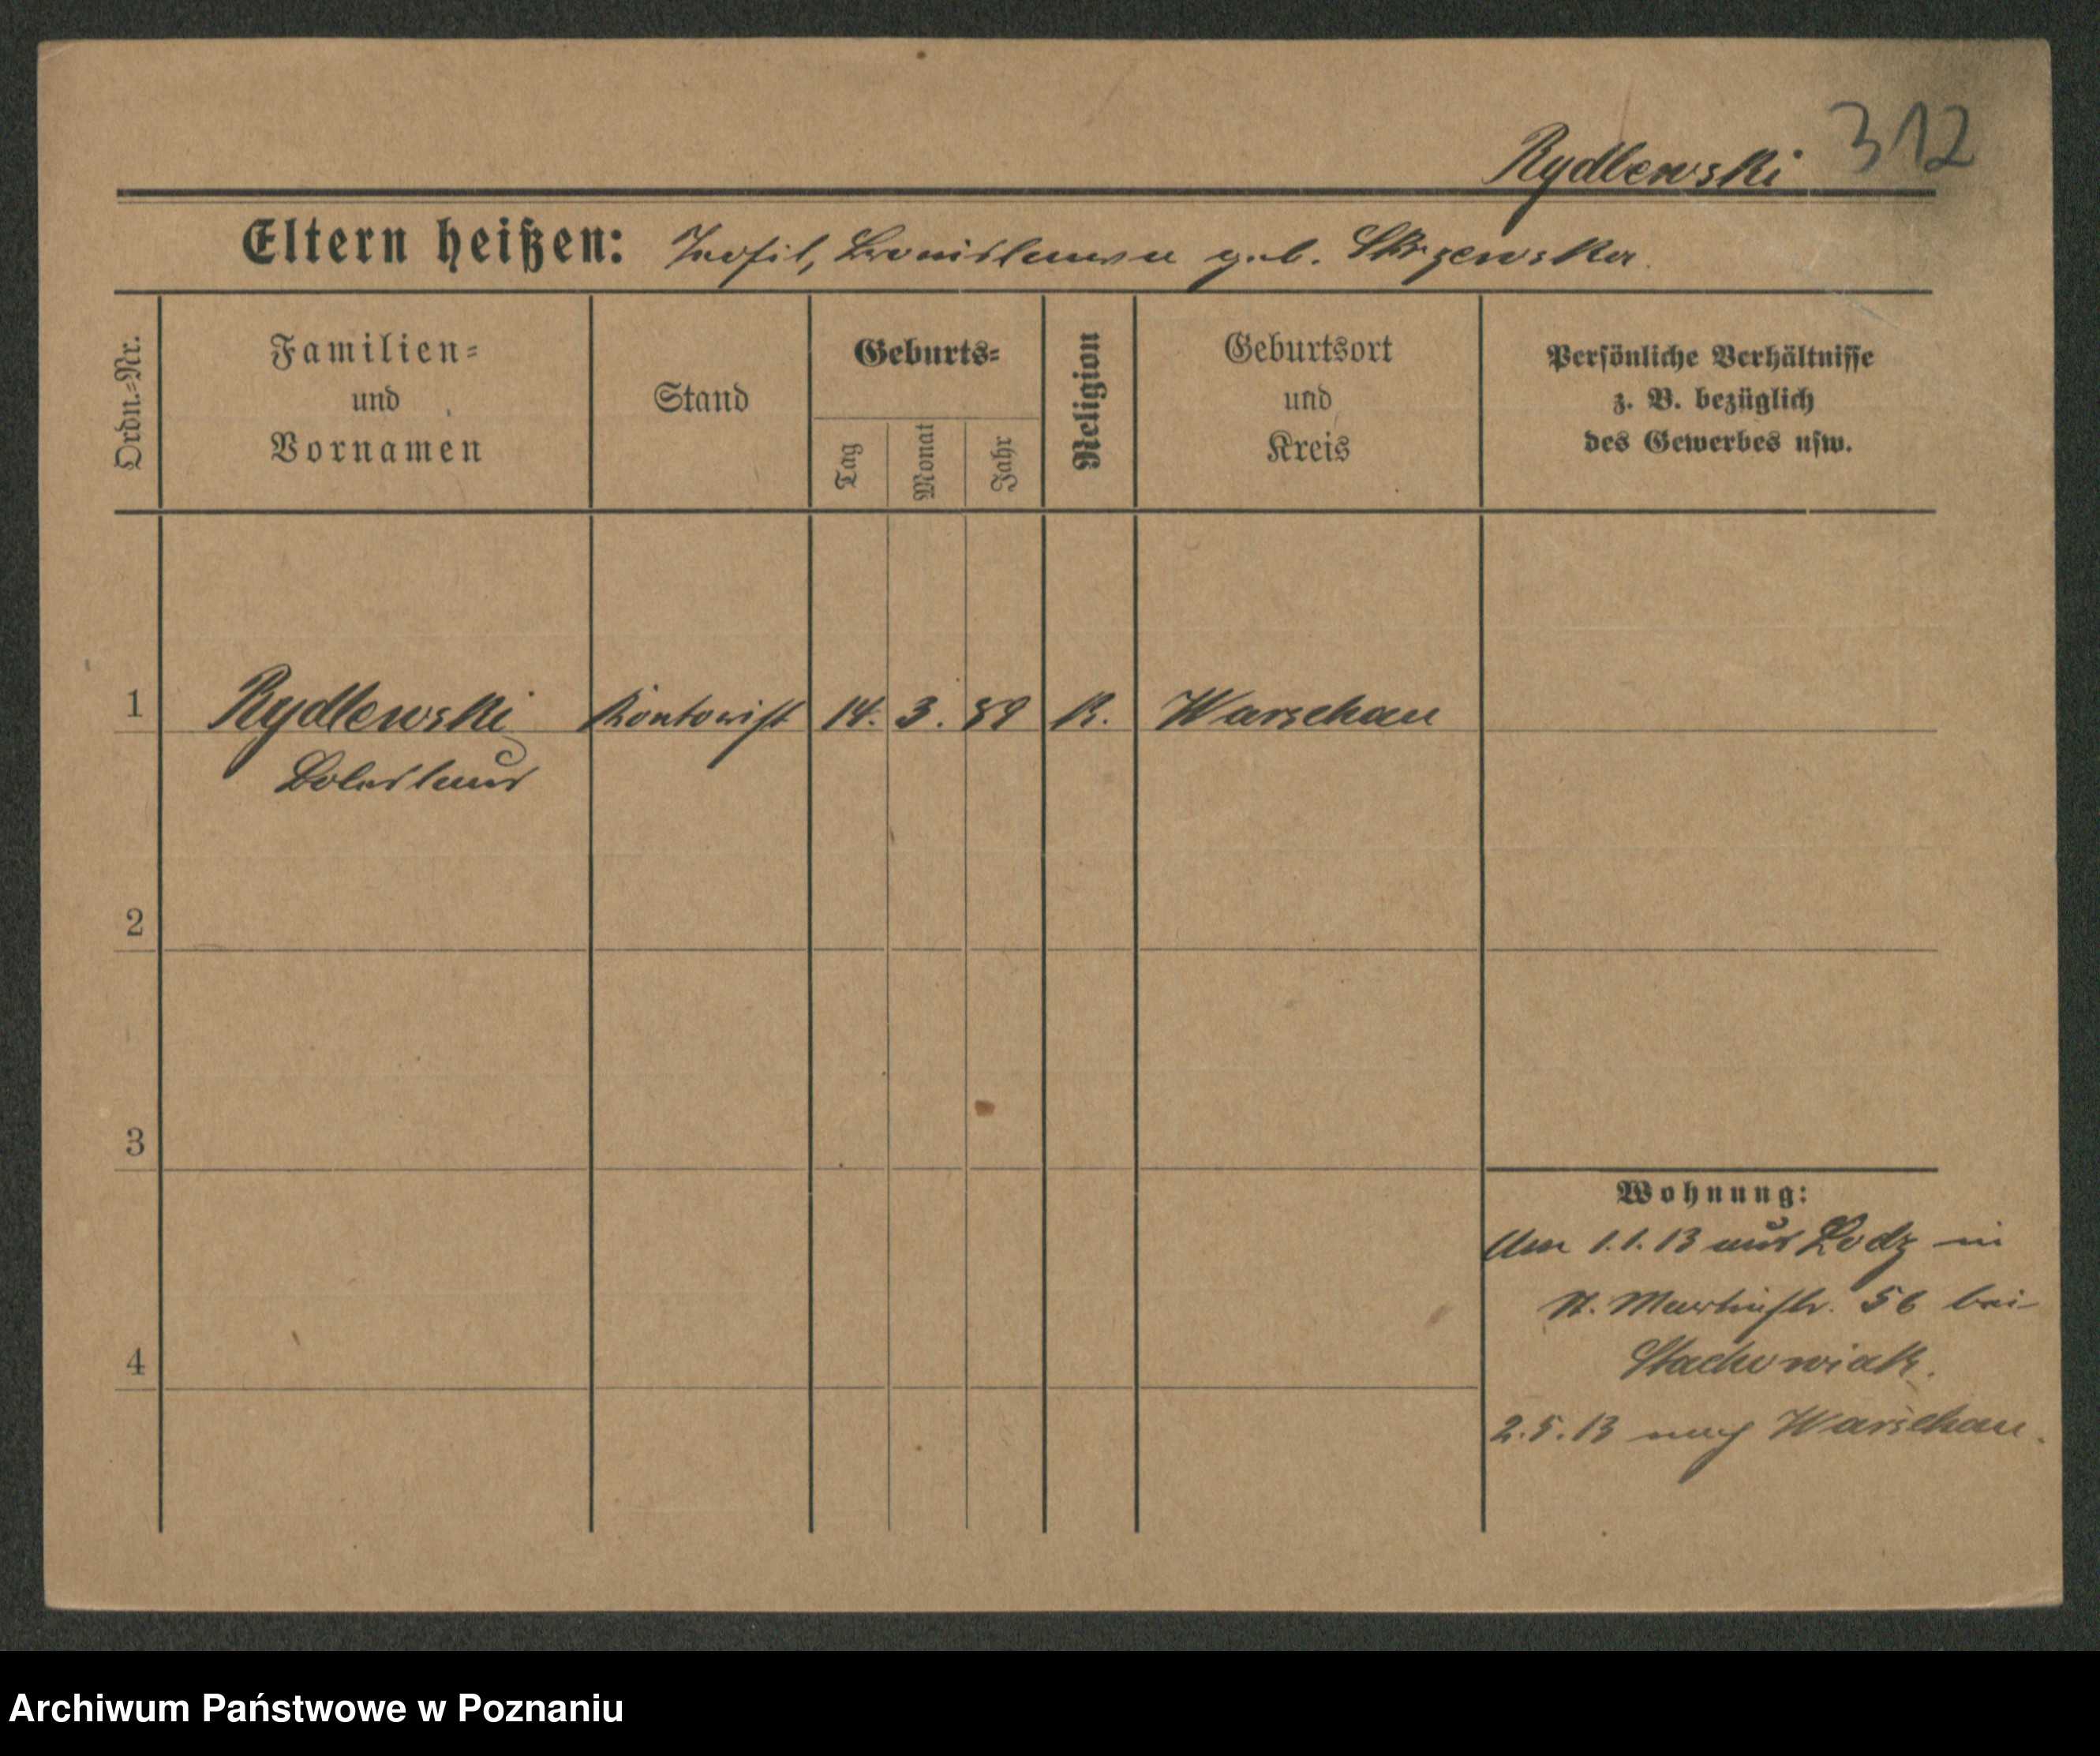 312
Rydlewski
Eltern heißen: Teofil, Bronislawa geb. Skrzewska.
Ordn.=Nr.
Familien=
und
Vornamen
Stand
Geburts=
Tag
Monat
Jahr
Religion
Geburtsort
und
Kreis
Persönliche Verhältnisse
z. B. bezüglich
des Gewerbes usw.
1 Rydlewski Kontorist 14. 3. 89 K. Warschau
Boleslaus
2
3
4
Wohnung:
Am 1.1.13 aus Lodz in
St. Martinstr. 56 bei
Stachowiak.
2.5.13 nach Warschau.
Archiwum Państwowe w Poznaniu